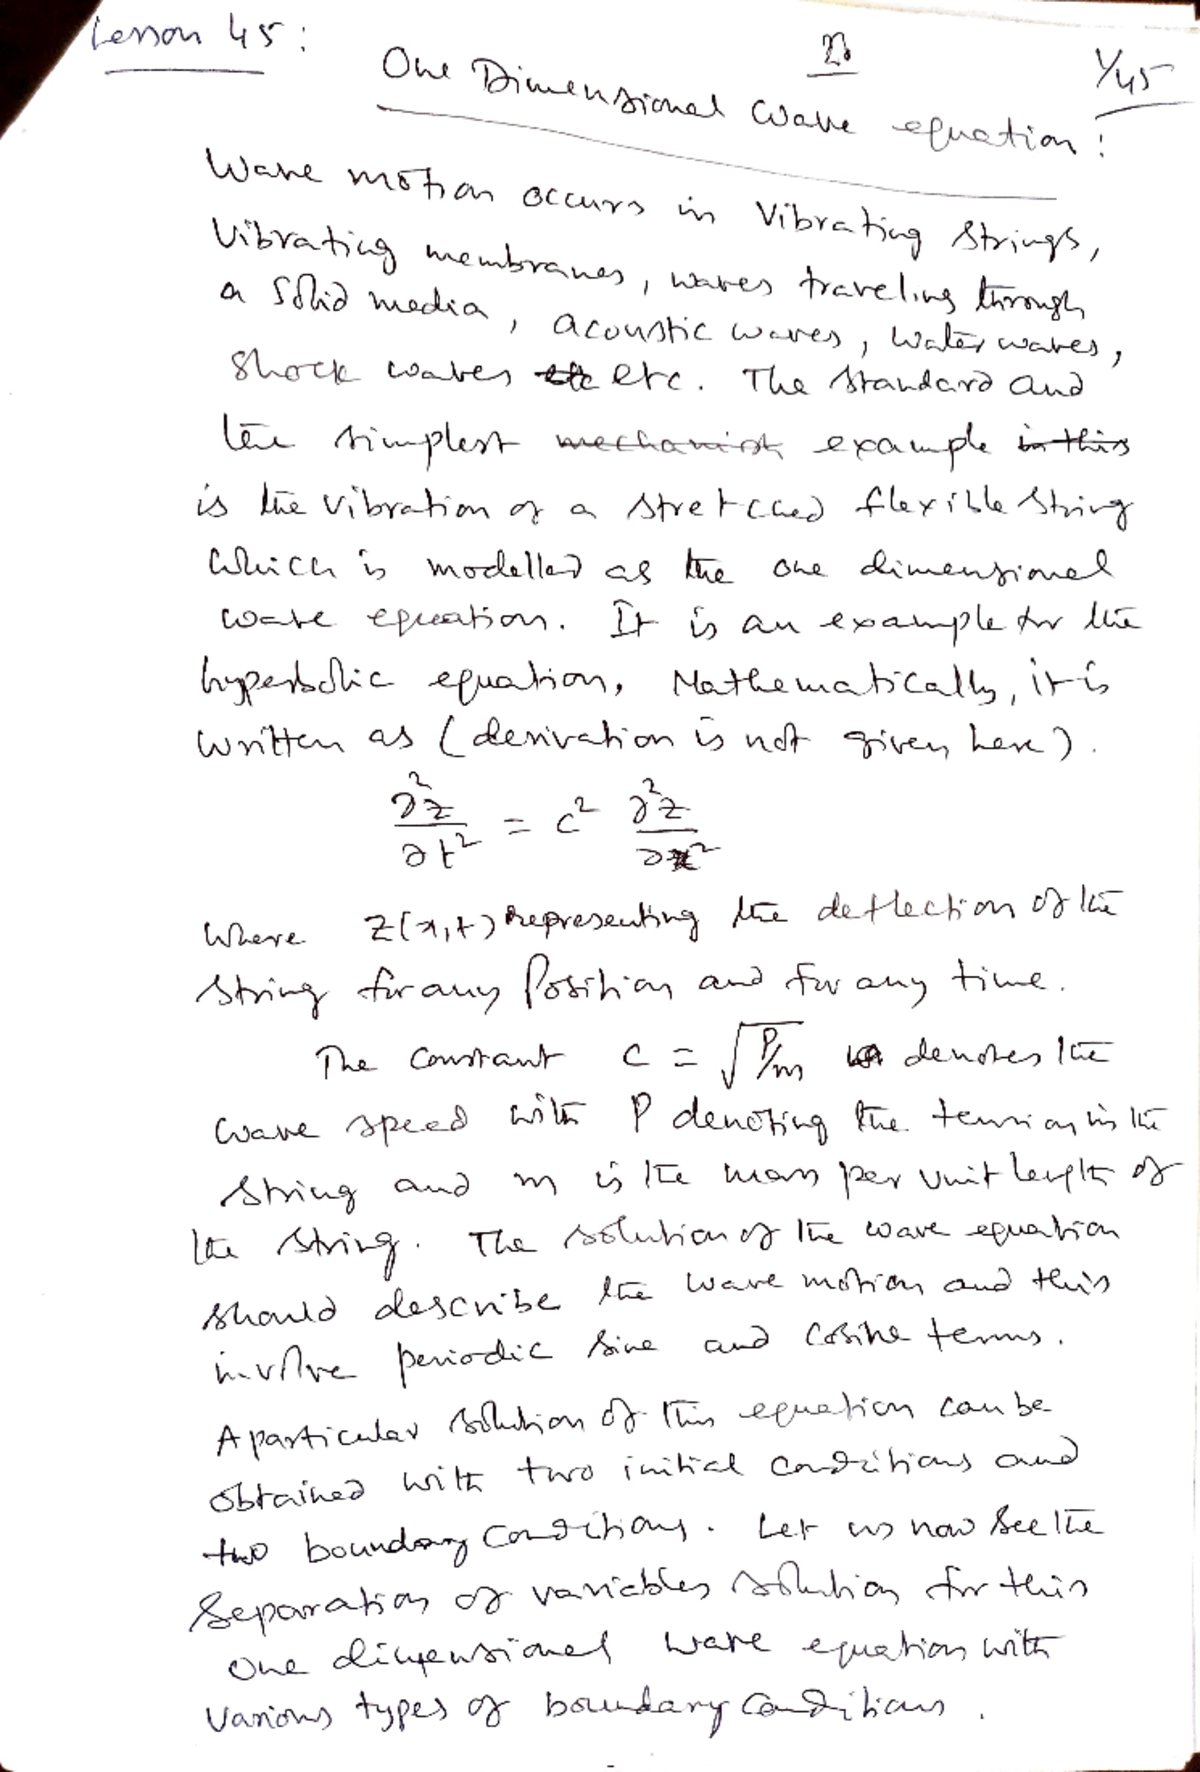 Lesson 45:
1/45
One Dimensional Wave equation:
Wave motion occurs in Vibrating Strings,
Vibrating membranes, waves traveling through
a Solid media, acoustic waves, Water waves,
Shock waves etc etc. The standard and
the simplest mechanist example in this
is the vibration of a stretched flexible string
which is modelled as the one dimensional
wave equation. It is an example for the
hyperbolic equation, Mathematically, it is
written as (derivation is not given here).
∂²z/∂t² = c² ∂²z/∂x²
Where z(x,t) representing the deflection of the
string for any Position and for any time.
The constant c = √P/m denotes the
wave speed with P denoting the tension in the
string and m is the mass per unit length of
the string. The solution of the wave equation
should describe the wave motion and this
involve periodic sine and cosine terms.
A particular solution of this equation can be
obtained with two initial conditions and
two boundary conditions. Let us now see the
Separation of variables solution for this
one dimensional wave equation with
various types of boundary conditions.